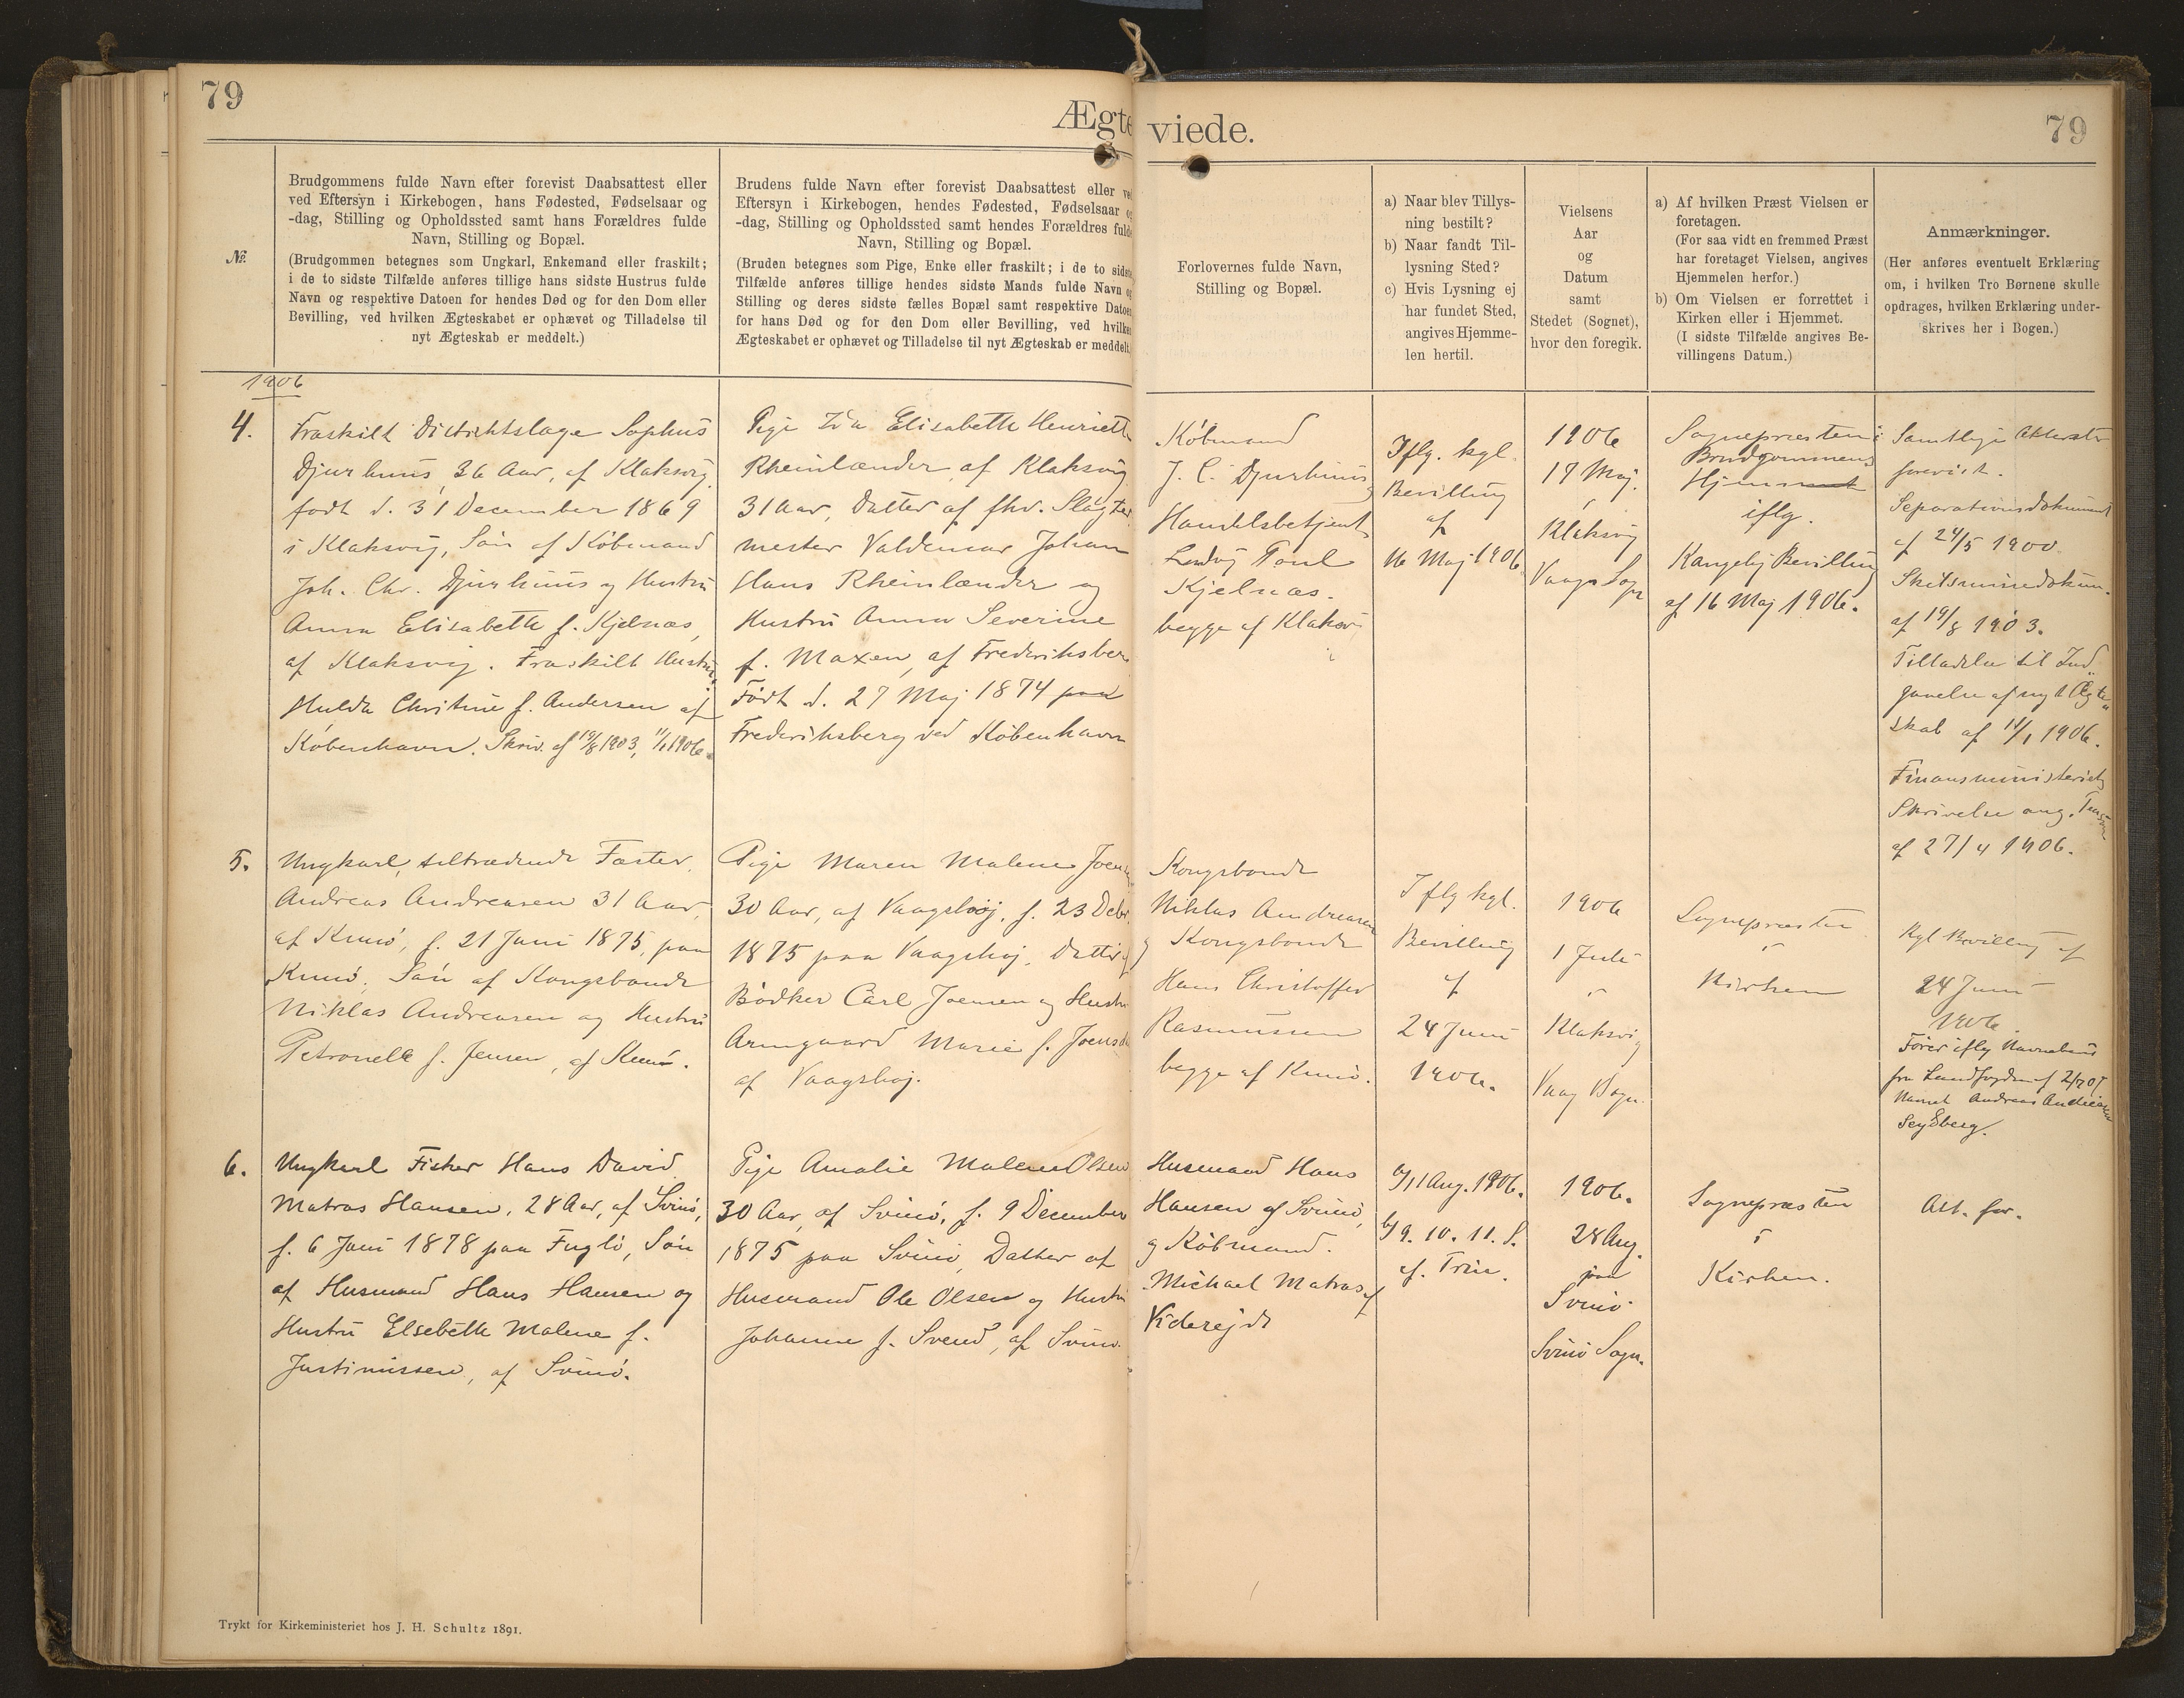 79
Ægte
viede.
79
№.
Brudgommens fulde Navn efter forevist Daabsattest eller
ved Eftersyn i Kirkebogen, hans Fødested, Fødselsaar og
-dag, Stilling og Opholdssted samt hans Forældres fulde
Navn, Stilling og Bopæl.
(Brudgommen betegnes som Ungkarl, Enkemand eller fraskilt;
i de to sidste Tilfælde anføres tillige hans sidste Hustrus fulde
Navn og respektive Datoen for hendes Død og for den Dom eller
Bevilling, ved hvilken Ægteskabet er ophævet og Tilladelse til
nyt Ægteskab er meddelt.)
Brudens fulde Navn efter forevist Daabsattest eller ved
Eftersyn i Kirkebogen, hendes Fødested, Fødselsaar og
-dag, Stilling og Opholdssted samt hendes Forældres fulde
Navn, Stilling og Bopæl.
(Bruden betegnes som Pige, Enke eller fraskilt; i de to sidste
Tilfælde anføres tillige hendes sidste Mands fulde Navn og
Stilling og deres sidste fælles Bopæl samt respektive Datoen
for hans Død og for den Dom eller Bevilling, ved hvilken
Ægteskabet er ophævet og Tilladelse til nyt Ægteskab er meddelt.)
Forlovernes fulde Navn,
Stilling og Bopæl.
a) Naar blev Tillys-
ning bestilt?
b) Naar fandt Til-
lysning Sted?
c) Hvis Lysning ej
har fundet Sted,
angives Hjemme-
len hertil.
Vielsens
Aar
og
Datum
samt
Stedet (Sognet),
hvor den foregik.
a) Af hvilken Præst Vielsen er
foretagen.
(For saa vidt en fremmed Præst
har foretaget Vielsen, angives
Hjemmelen herfor.)
b) Om Vielsen er forrettet i
Kirken eller i Hjemmet.
(I sidste Tilfælde angives Be-
villingens Datum.)
Anmærkninger.
(Her anføres eventuelt Erklæring
om, i hvilken Tro Børnene skulle
opdrages, hvilken Erklæring under-
skrives her i Bogen.)
1906
4.
Fraskilt Distriktslæge Sophus
Djurhuus, 36 Aar, af Klaksvig,
født d. 31 December 1869
i Klaksvig, Søn af Købmand
Joh. Chr. Djurhuus og Hustru
Anna Elisabeth f. Kjelnæs,
af Klaksvig. Fraskilt Hustru,
Hulda Christine f. Andersen af
København. Skriv. af 19/8 1903, 11/1 1906.
Pige Ida Elisabeth Henriette
Rheinlænder, af Klaksvig
31 Aar, Datter af fhv. Slagter
mester Valdemar Johan
Hans Rheinlænder og
Hustru Anna Severine
f. Maxen, af Frederiksberg
Født d. 27 Maj 1874 paa
Frederiksberg ved København
Købmand
J. C. Djurhuus
Handelsbetjent
Poul
Kjelnæs.
begge af Klaksvi
g
Iflg. kgl.
Bevilling
af
16 Maj 1906
1906
17 Maj.
i
Klaksvig
Vaags Sogn
Sognepræsten i
Brudgommens
Hjem
iflg.
Kongelig Bevilling
af 16 Maj 1906.
Samtlige Attester
forevist.
Separationsdokument
af 24/5 1900
Skilsmissedokum.
af 19/8 1903.
Tilladelse til Ind-
gaaelse af nyt Ægte-
skab af 11/1 1906.
Finansministeriets
Skrivelse ang.
af 27/4 1906.
5.
Ungkarl, tiltrædende Fæster,
Andreas Andreasen 31 Aar,
af Kunø, f. 21 Juni 1875, paa
Kunø, Søn af Kongsbonde
Niklas Andreasen og Hustru
Petronelle f. Jensen, af Kunø.
Pige Maren Malene Joensen
30 Aar, af Vaagshøj, f. 23 Debr
1875 paa Vaagshøj, Datter af
Bødker Carl Joensen og Hustru
Armgaard Marie f. Joensen
af Vaagshøj.
Kongsbonde
Niklas Andreasen
og Kongsbonde
Hans Christoffer
Rasmussen
begge af Kunø.
Iflg kgl.
Bevilling
af
24 Juni
1906.
1906
1 Juli
i
Klaksvig
Vaag Sogn.
Sognepræsten
i
Kirken
Kgl Bevilling af
24 Juni
1906.
Fører iflg Navnebevis
fra Landfogden af
Navnet Andreas Andreasen
6.
Ungkarl Fisker Hans David
Matras Hansen, 28 Aar, af Svinø,
f. 6 Juni 1878 paa Fuglø, Søn
af Husmand Hans Hansen og
Hustru Elsebeth Malene f.
Justinussen, af Svinø.
Pige Amalie Malene Olsen
30 Aar, af Svinø, f. 9 December
1875 paa Svinø, Datter af
Husmand Ole Olsen og Hustru
Johanne f. Svend, af Svinø.
Husmand Hans
Hansen af Svinø,
og Købmand
Michael Matras af
Viderejde
a/ 11 Aug. 1906.
b/ 9. 10. 11. S.
ef. Trin.
1906.
28 Aug.
paa
Svinø
Svinø Sogn.
Sognepræsten
i
Kirken.
Att. for.
Trykt for Kirkeministeriet hos J. H. Schultz 1891.